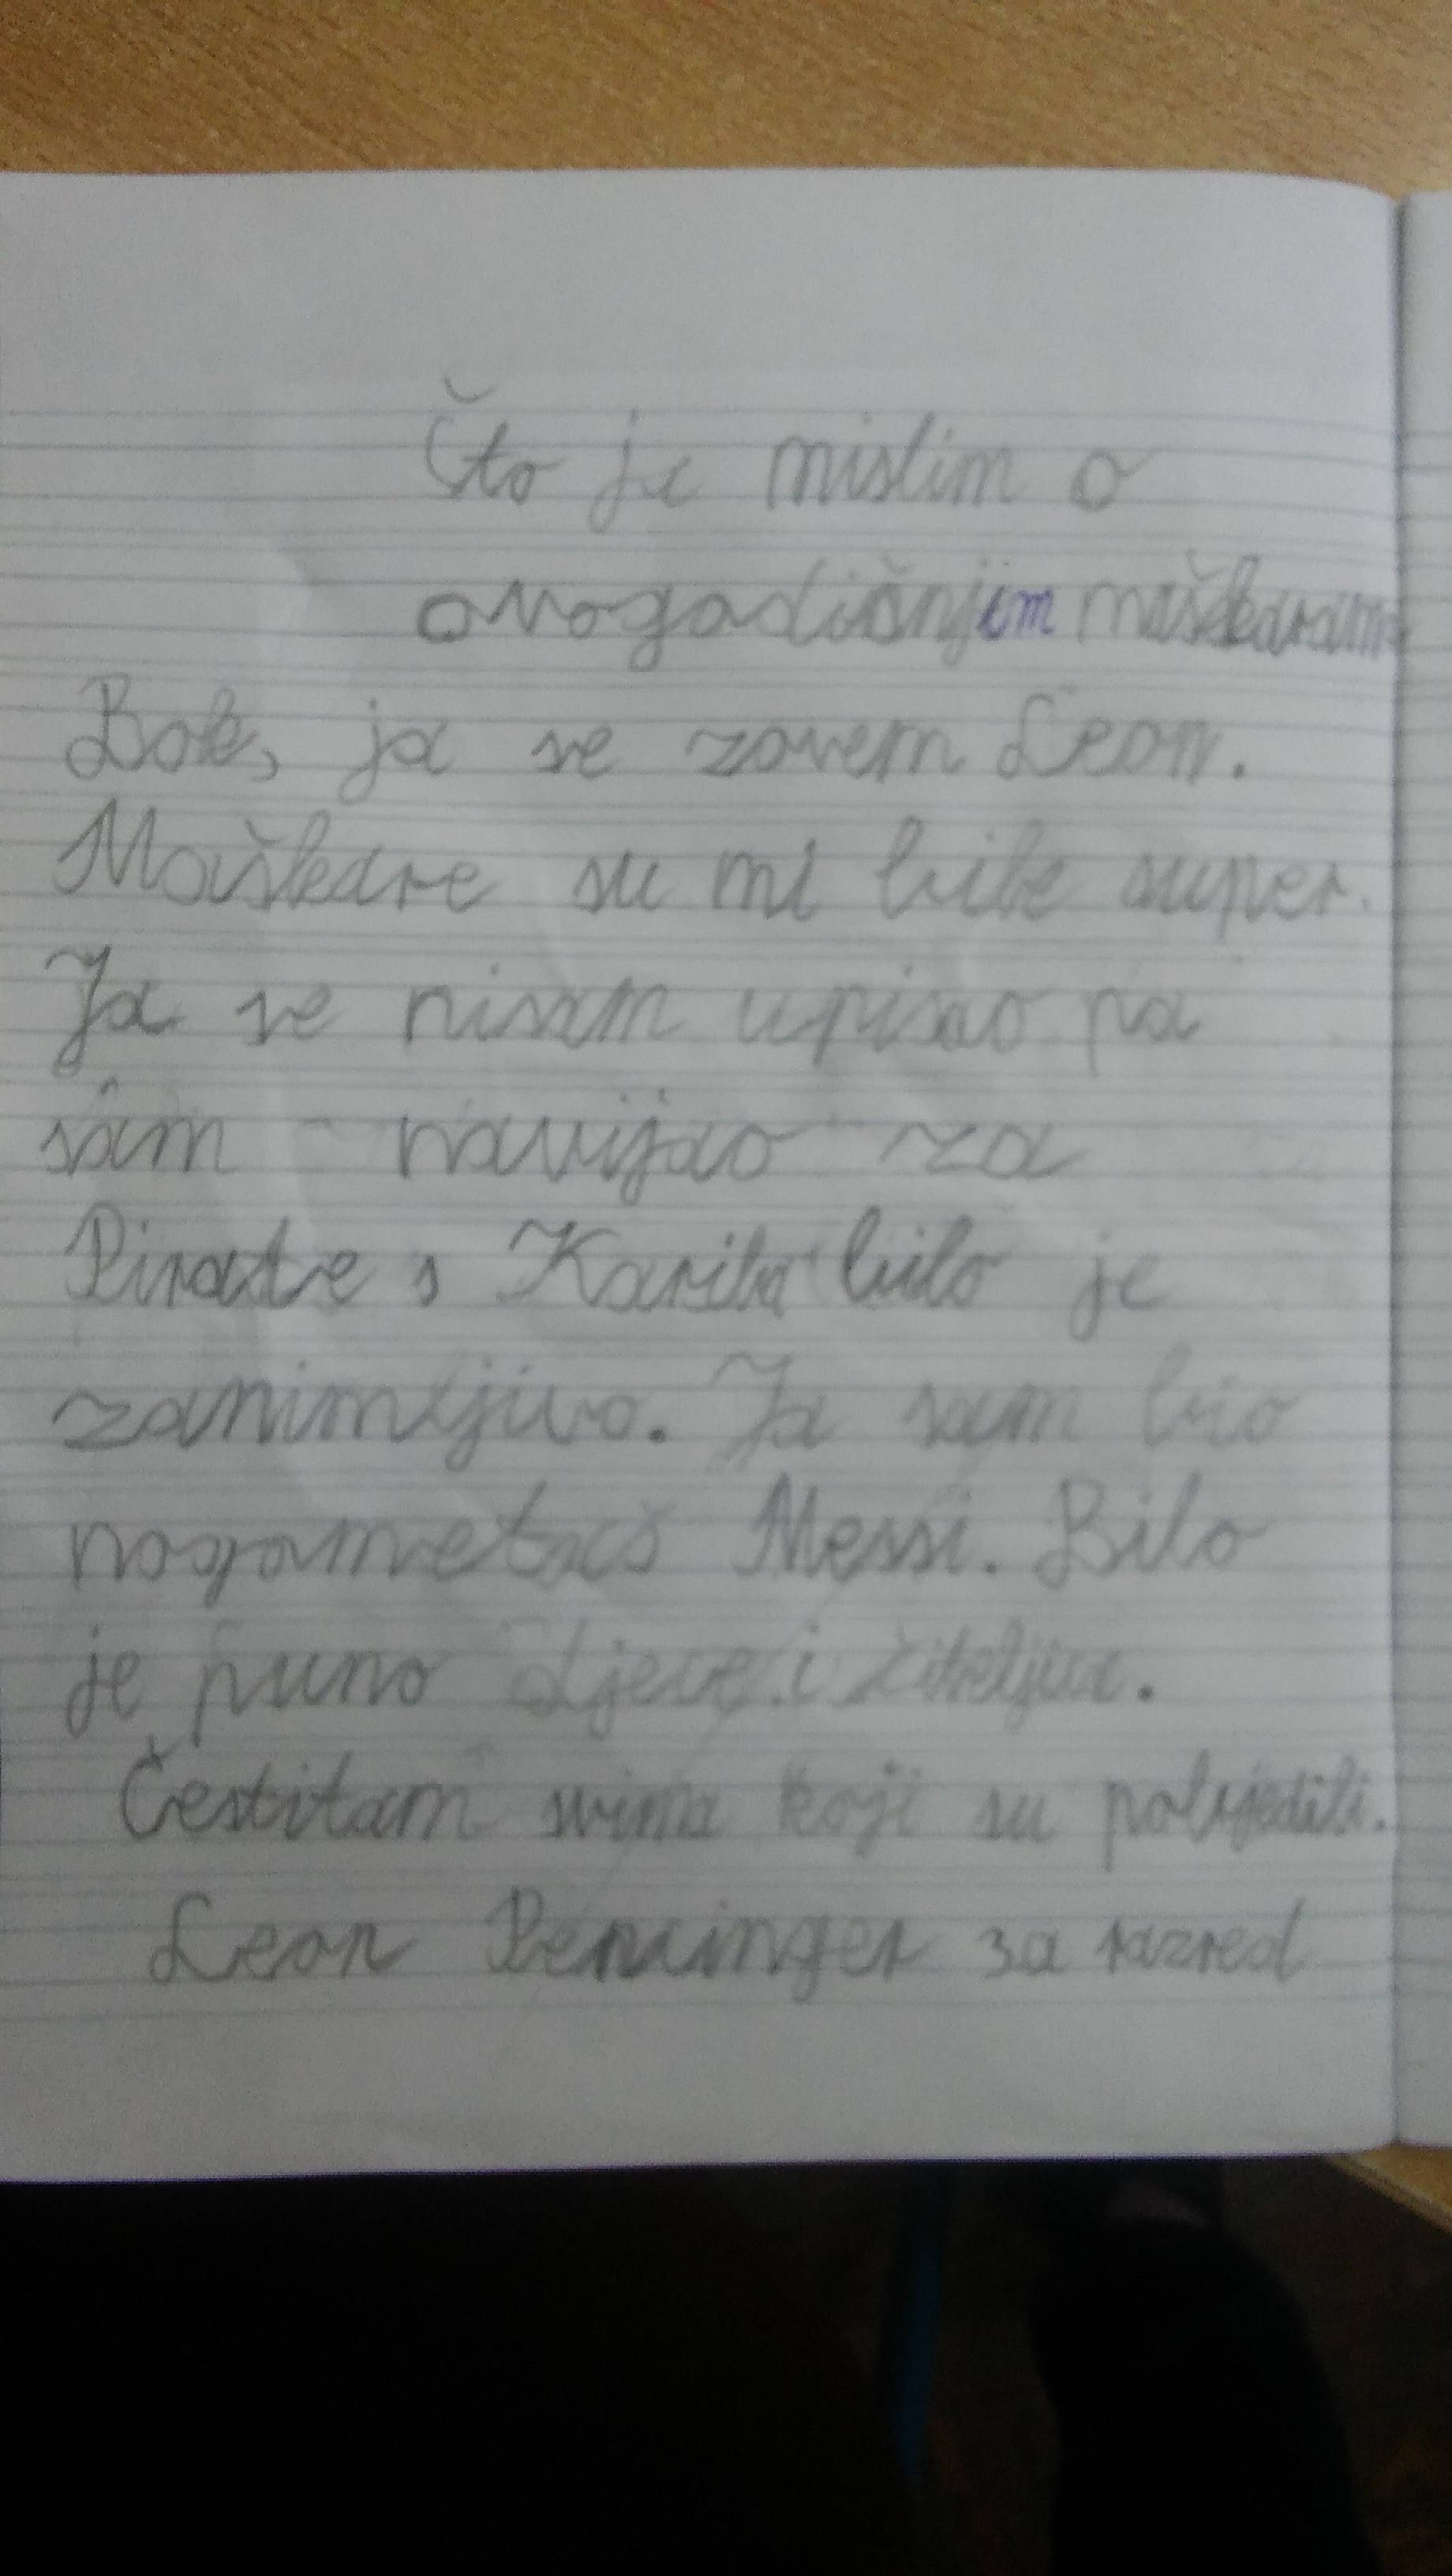 Što je mislim o
ovogodišnjim maškarama
Bok, ja se zovem Leon.
Maškare su mi bile super.
Ja se nisam upisao pa
sam navijao za
Pirate s Kariba bilo je
zanimljivo. Ja sam bio
nogometaš Messi. Bilo
je puno djece i žitelja.
Čestitam svima koji su pobijedili.
Leon 3a razred